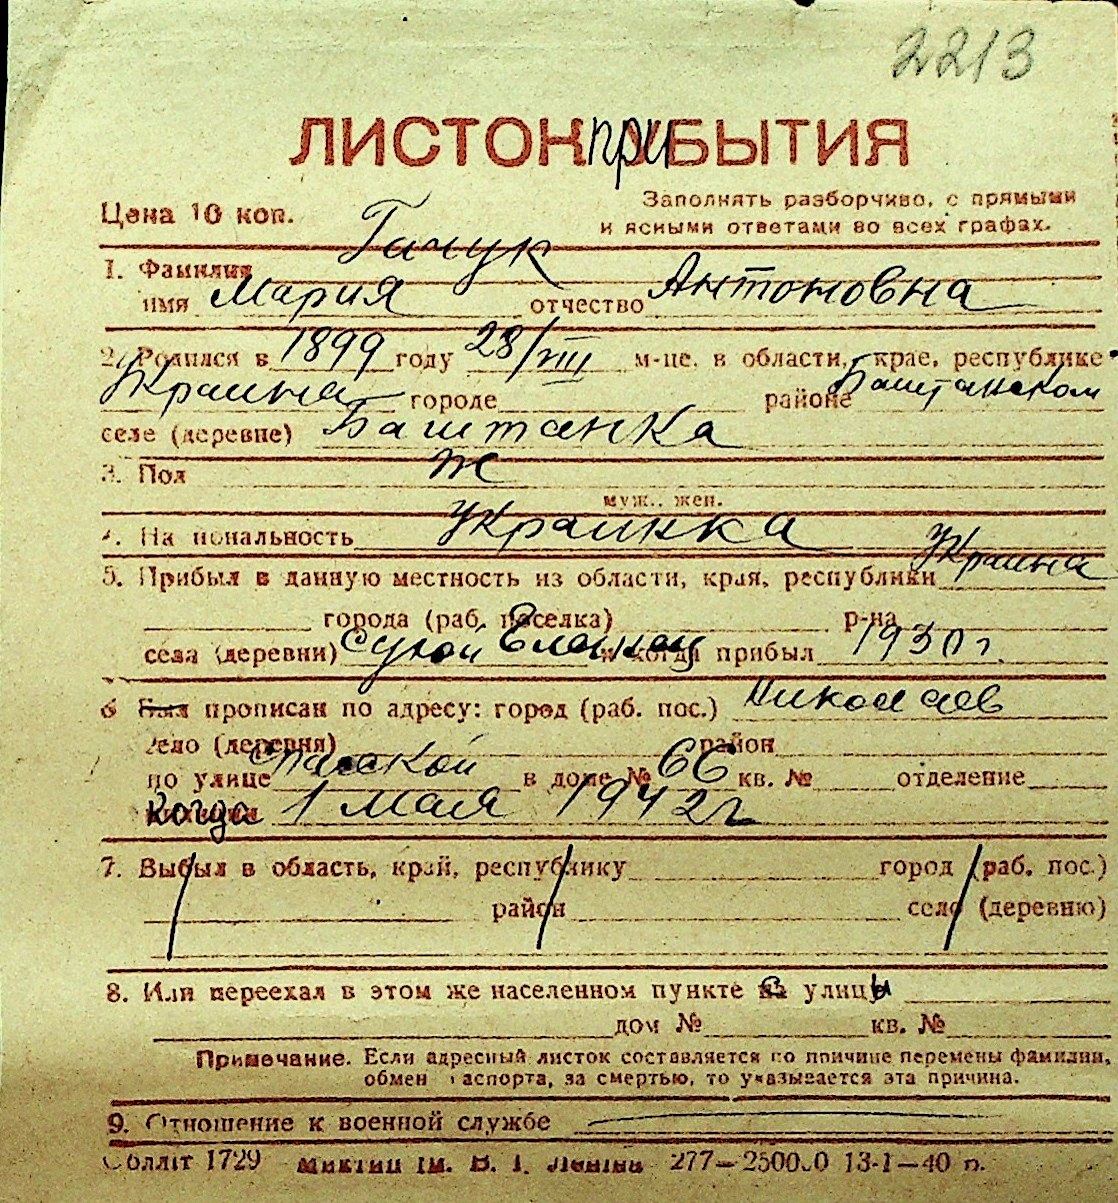 2213
ЛИСТОК ПРИБЫТИЯ
Цена 10 коп.
Заполнять разборчиво, с прямыми
и ясными ответами во всех графах.
1. Фамилия Гачук
имя Мария отчество Антоновна
2. Родился в 1899 году 28/VIII м-це, в области, крае, республике
Украина городе районе Баштанском
селе (деревне) Баштанка
3. Пол ж
муж., жен.
4. Национальность Украинка
5. Прибыл в данную местность из области, края, республики Украина
города (раб. поселка) р-на
села (деревни) Сухой Еланец и когда прибыл 1930 г.
6 Был прописан по адресу: город (раб. пос.) Николаев
село (деревня) район
по улице Спасской в доме № 66 кв. № отделение
когда 1 мая 1942 г
7. Выбыл в область, край, республику город (раб. пос.)
район село (деревню)
8. Или переехал в этом же населенном пункте с улицы
дом № кв. №
Примечание. Если адресный листок составляется по причине перемены фамилии,
обмен паспорта, за смертью, то указывается эта причина.
9. Отношение к военной службе
Обллiт 1729 iм. В. I. Ленiна 277—25000 13-I—40 р.